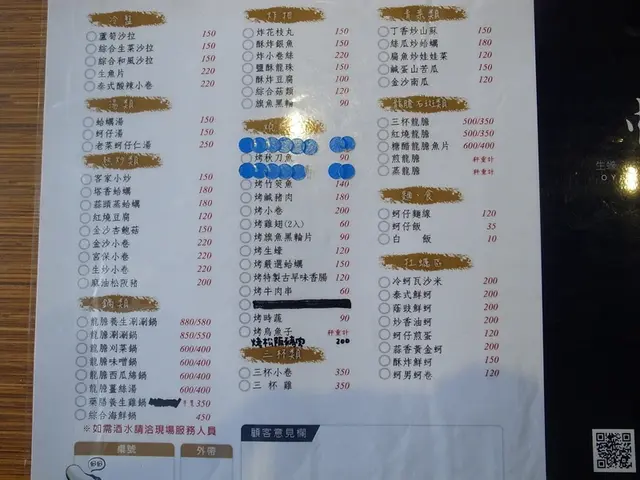 冷盤
蘆筍沙拉 150
綜合生菜沙拉 150
綜合和風沙拉 150
生魚片 220
泰式酸辣小卷 220
湯類
蛤蠣湯 150
蚵仔湯 150
老菜蚵仔仁湯 250
熱炒類
客家小炒 150
塔香蛤蠣 180
蒜頭蒸蛤蠣 180
紅燒豆腐 120
金沙杏鮑菇 150
金沙小卷 220
宮保小卷 220
生炒小卷 220
麻油松阪豬 220
鍋類
龍膽養生涮涮鍋 880/580
龍膽涮涮鍋 850/550
龍膽刈菜鍋 600/400
龍膽味噌鍋 600/400
龍膽西瓜綿鍋 600/400
龍膽薑絲湯 600/400
藥膳養生雞鍋 350
綜合海鮮鍋 450
※如需酒水請洽現場服務人員
檯號 外帶
炸類
炸花枝丸 150
酥炸銀魚 150
炸小卷絲 220
鹽酥龍珠 150
酥炸豆腐 100
綜合菇類 120
旗魚黑輪 90
烤秋刀魚 90
烤竹筴魚 140
烤鹹豬肉 180
烤小卷 200
烤雞翅(2入) 60
烤旗魚黑輪片 90
烤生蠔 120
烤嚴選蛤蠣 150
烤特製古早味香腸 120
烤牛肉串 60
烤時蔬 90
烤烏魚子 秤重計
烤松阪豬肉 200
三杯類
三杯小卷 350
三杯雞 350
顧客意見欄
青菜類
丁香炒山蘇 150
絲瓜炒蛤蠣 180
扁魚炒娃娃菜 120
鹹蛋山苦瓜 150
金沙南瓜 120
龍膽石斑類
三杯龍膽 500/350
紅燒龍膽 500/350
糖醋龍膽魚片 600/400
煎龍膽 秤重計
蒸龍膽 秤重計
麵.食
蚵仔麵線 120
蚵仔飯 35
白飯 10
牡蠣區
冷蚵瓦沙米 200
泰式鮮蚵 200
蔭豉鮮蚵 200
炒香油蚵 200
蚵仔煎蛋 120
蒜香黃金蚵 200
酥炸鮮蚵 150
蚵男蚵卷 120